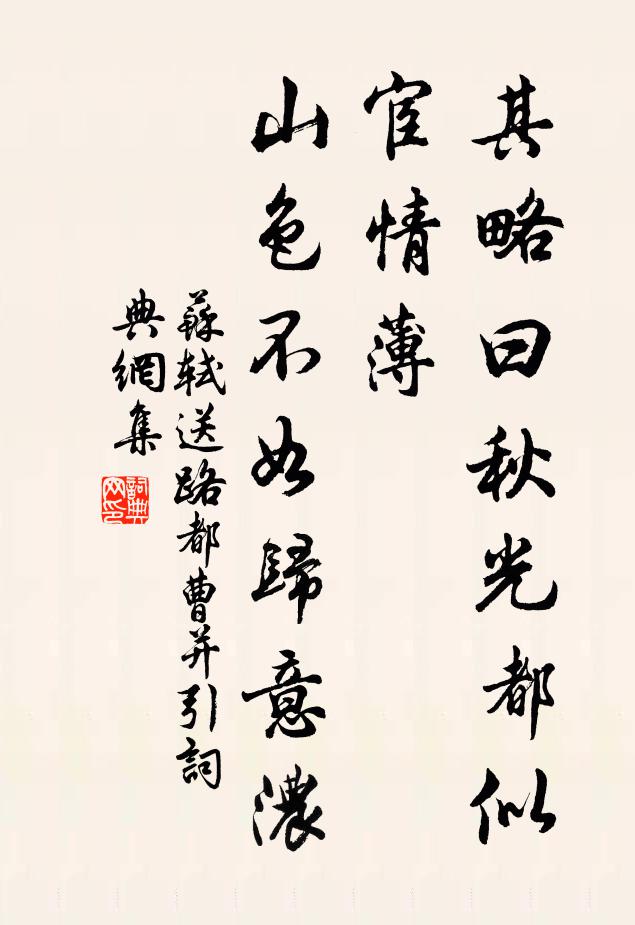 其略曰秋光都似
宦情薄
山色不如歸意濃
蘇軾送路都曹并引詞
典網集
詞典網印